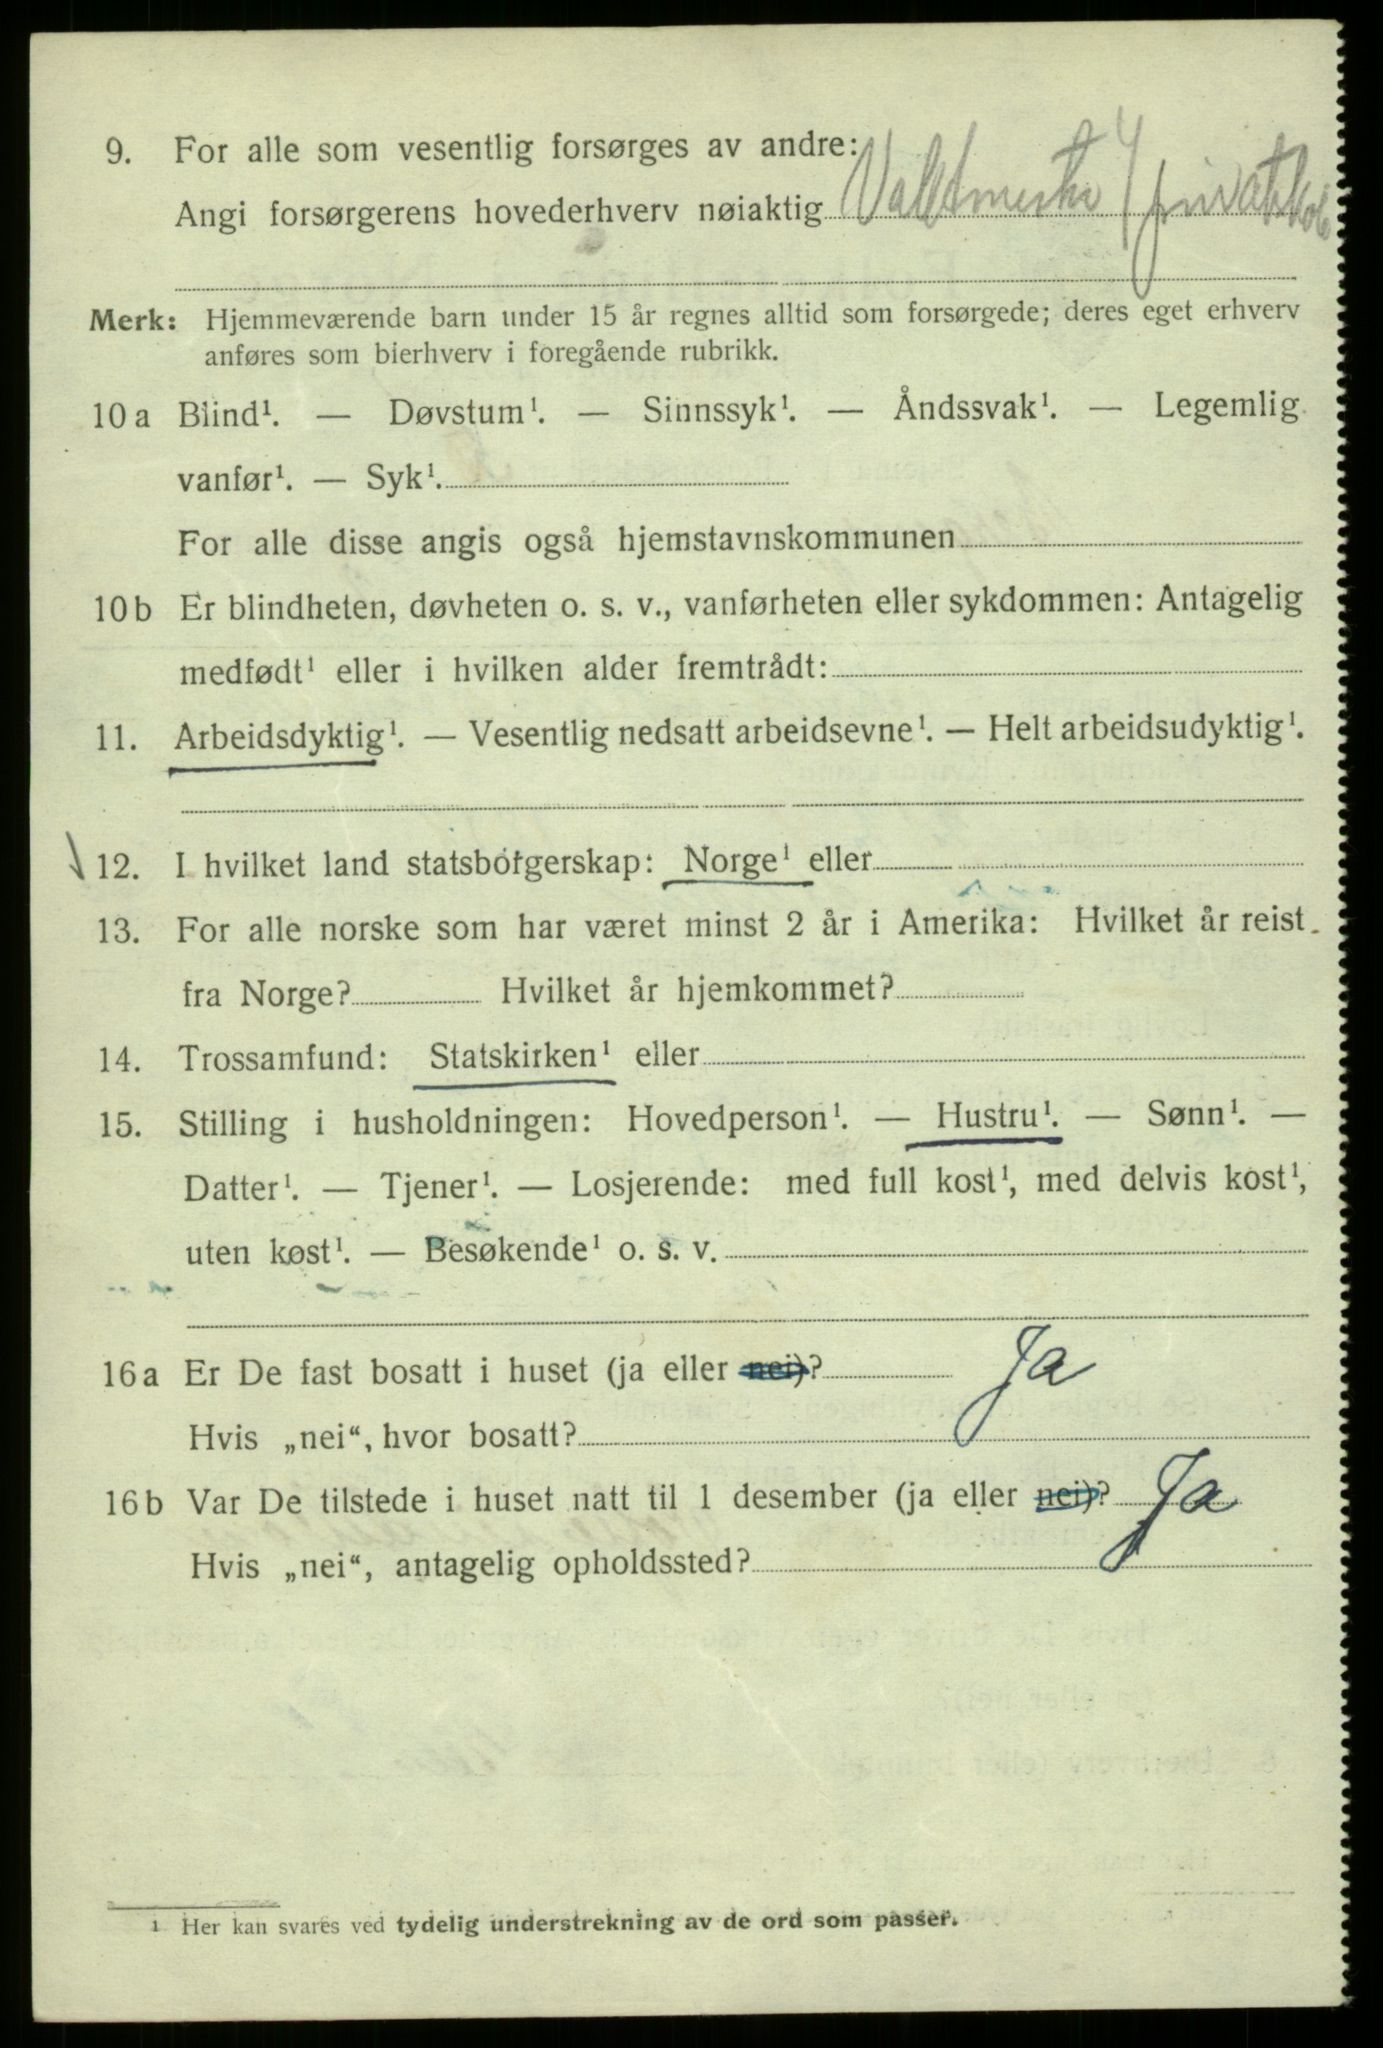 9. For alle som vesentlig forsørges av andre:
Angi forsørgerens hovederhverv nøiaktig
Merk: Hjemmeværende barn under 15 år regnes alltid som forsørgede; deres eget erhverv
anføres som bierhverv i foregående rubrikk.
10 a Blind¹. — Døvstum¹. — Sinnssyk¹. — Åndssvak¹. — Legemlig
vanfør¹. — Syk¹.
For alle disse angis også hjemstavnskommunen
10 b Er blindheten, døvheten o. s. v., vanførheten eller sykdommen: Antagelig
medfødt¹ eller i hvilken alder fremtrådt:
11. Arbeidsdyktig¹. — Vesentlig nedsatt arbeidsevne¹. — Helt arbeidsudyktig¹.
12. I hvilket land statsborgerskap: Norge¹ eller
13. For alle norske som har været minst 2 år i Amerika: Hvilket år reist
fra Norge? Hvilket år hjemkommet?
14. Trossamfund: Statskirken¹ eller
15. Stilling i husholdningen: Hovedperson¹. — Hustru¹. — Sønn¹. —
Datter¹. — Tjener¹. — Losjerende: med full kost¹, med delvis kost¹,
uten kost¹. — Besøkende¹ o. s. v.
16 a Er De fast bosatt i huset (ja eller nei)? Ja
Hvis „nei“, hvor bosatt?
16 b Var De tilstede i huset natt til 1 desember (ja eller nei)? Ja
Hvis „nei“, antagelig opholdssted?
¹ Her kan svares ved tydelig understrekning av de ord som passer.